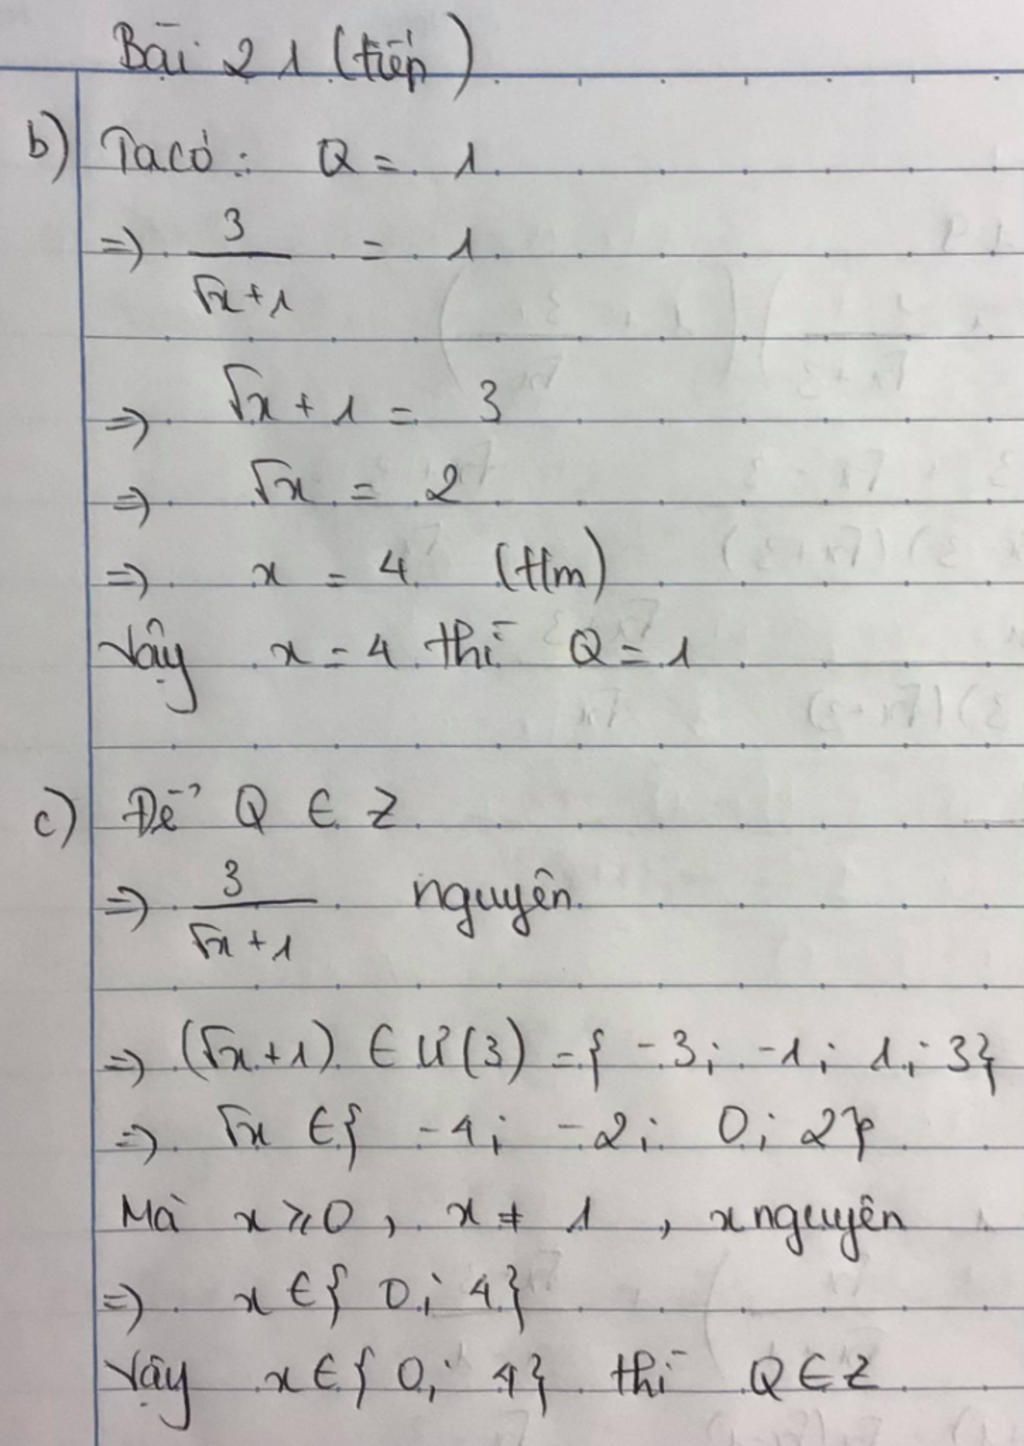 Bài 21 (tiếp)
b) Ta có: Q = 1
=> 3/(√x+1) = 1
=> √x + 1 = 3
=> √x = 2
=> x = 4 (t/m)
Vậy x = 4 thì Q = 1
c) Để Q ∈ Z
=> 3/(√x+1) nguyên
=> (√x+1) ∈ Ư(3) = { -3; -1; 1; 3}
=> √x ∈ { -4; -2; 0; 2}
Mà x ⩾ 0, x ≠ 1, x nguyên
=> x ∈ { 0; 4}
Vậy x ∈ { 0; 4} thì Q ∈ Z